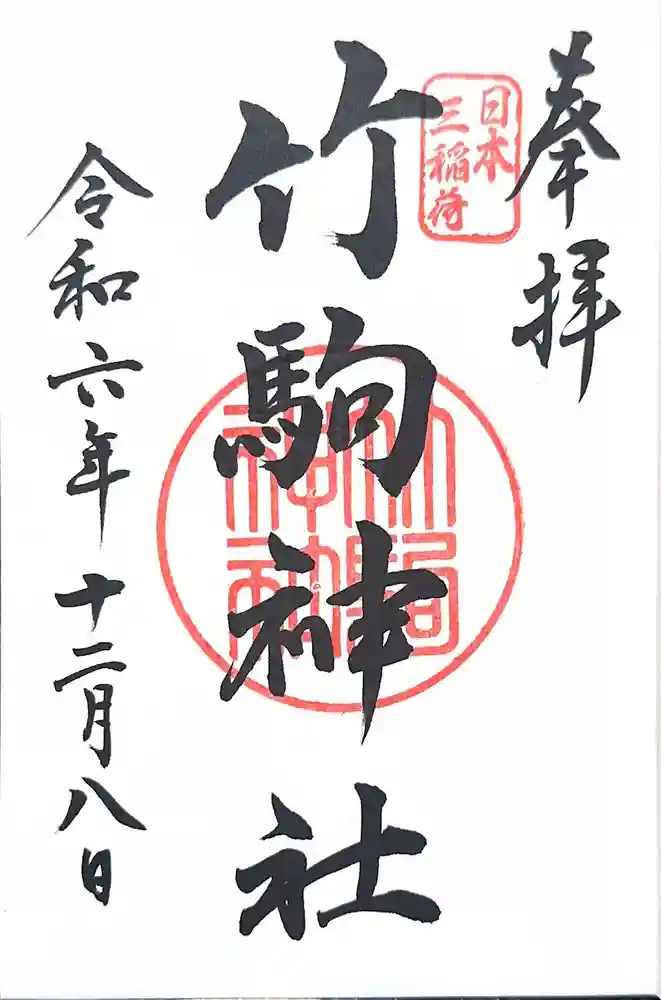 奉拝
日本
三稲荷
竹駒神社
竹駒
神社
令和六年十二月八日